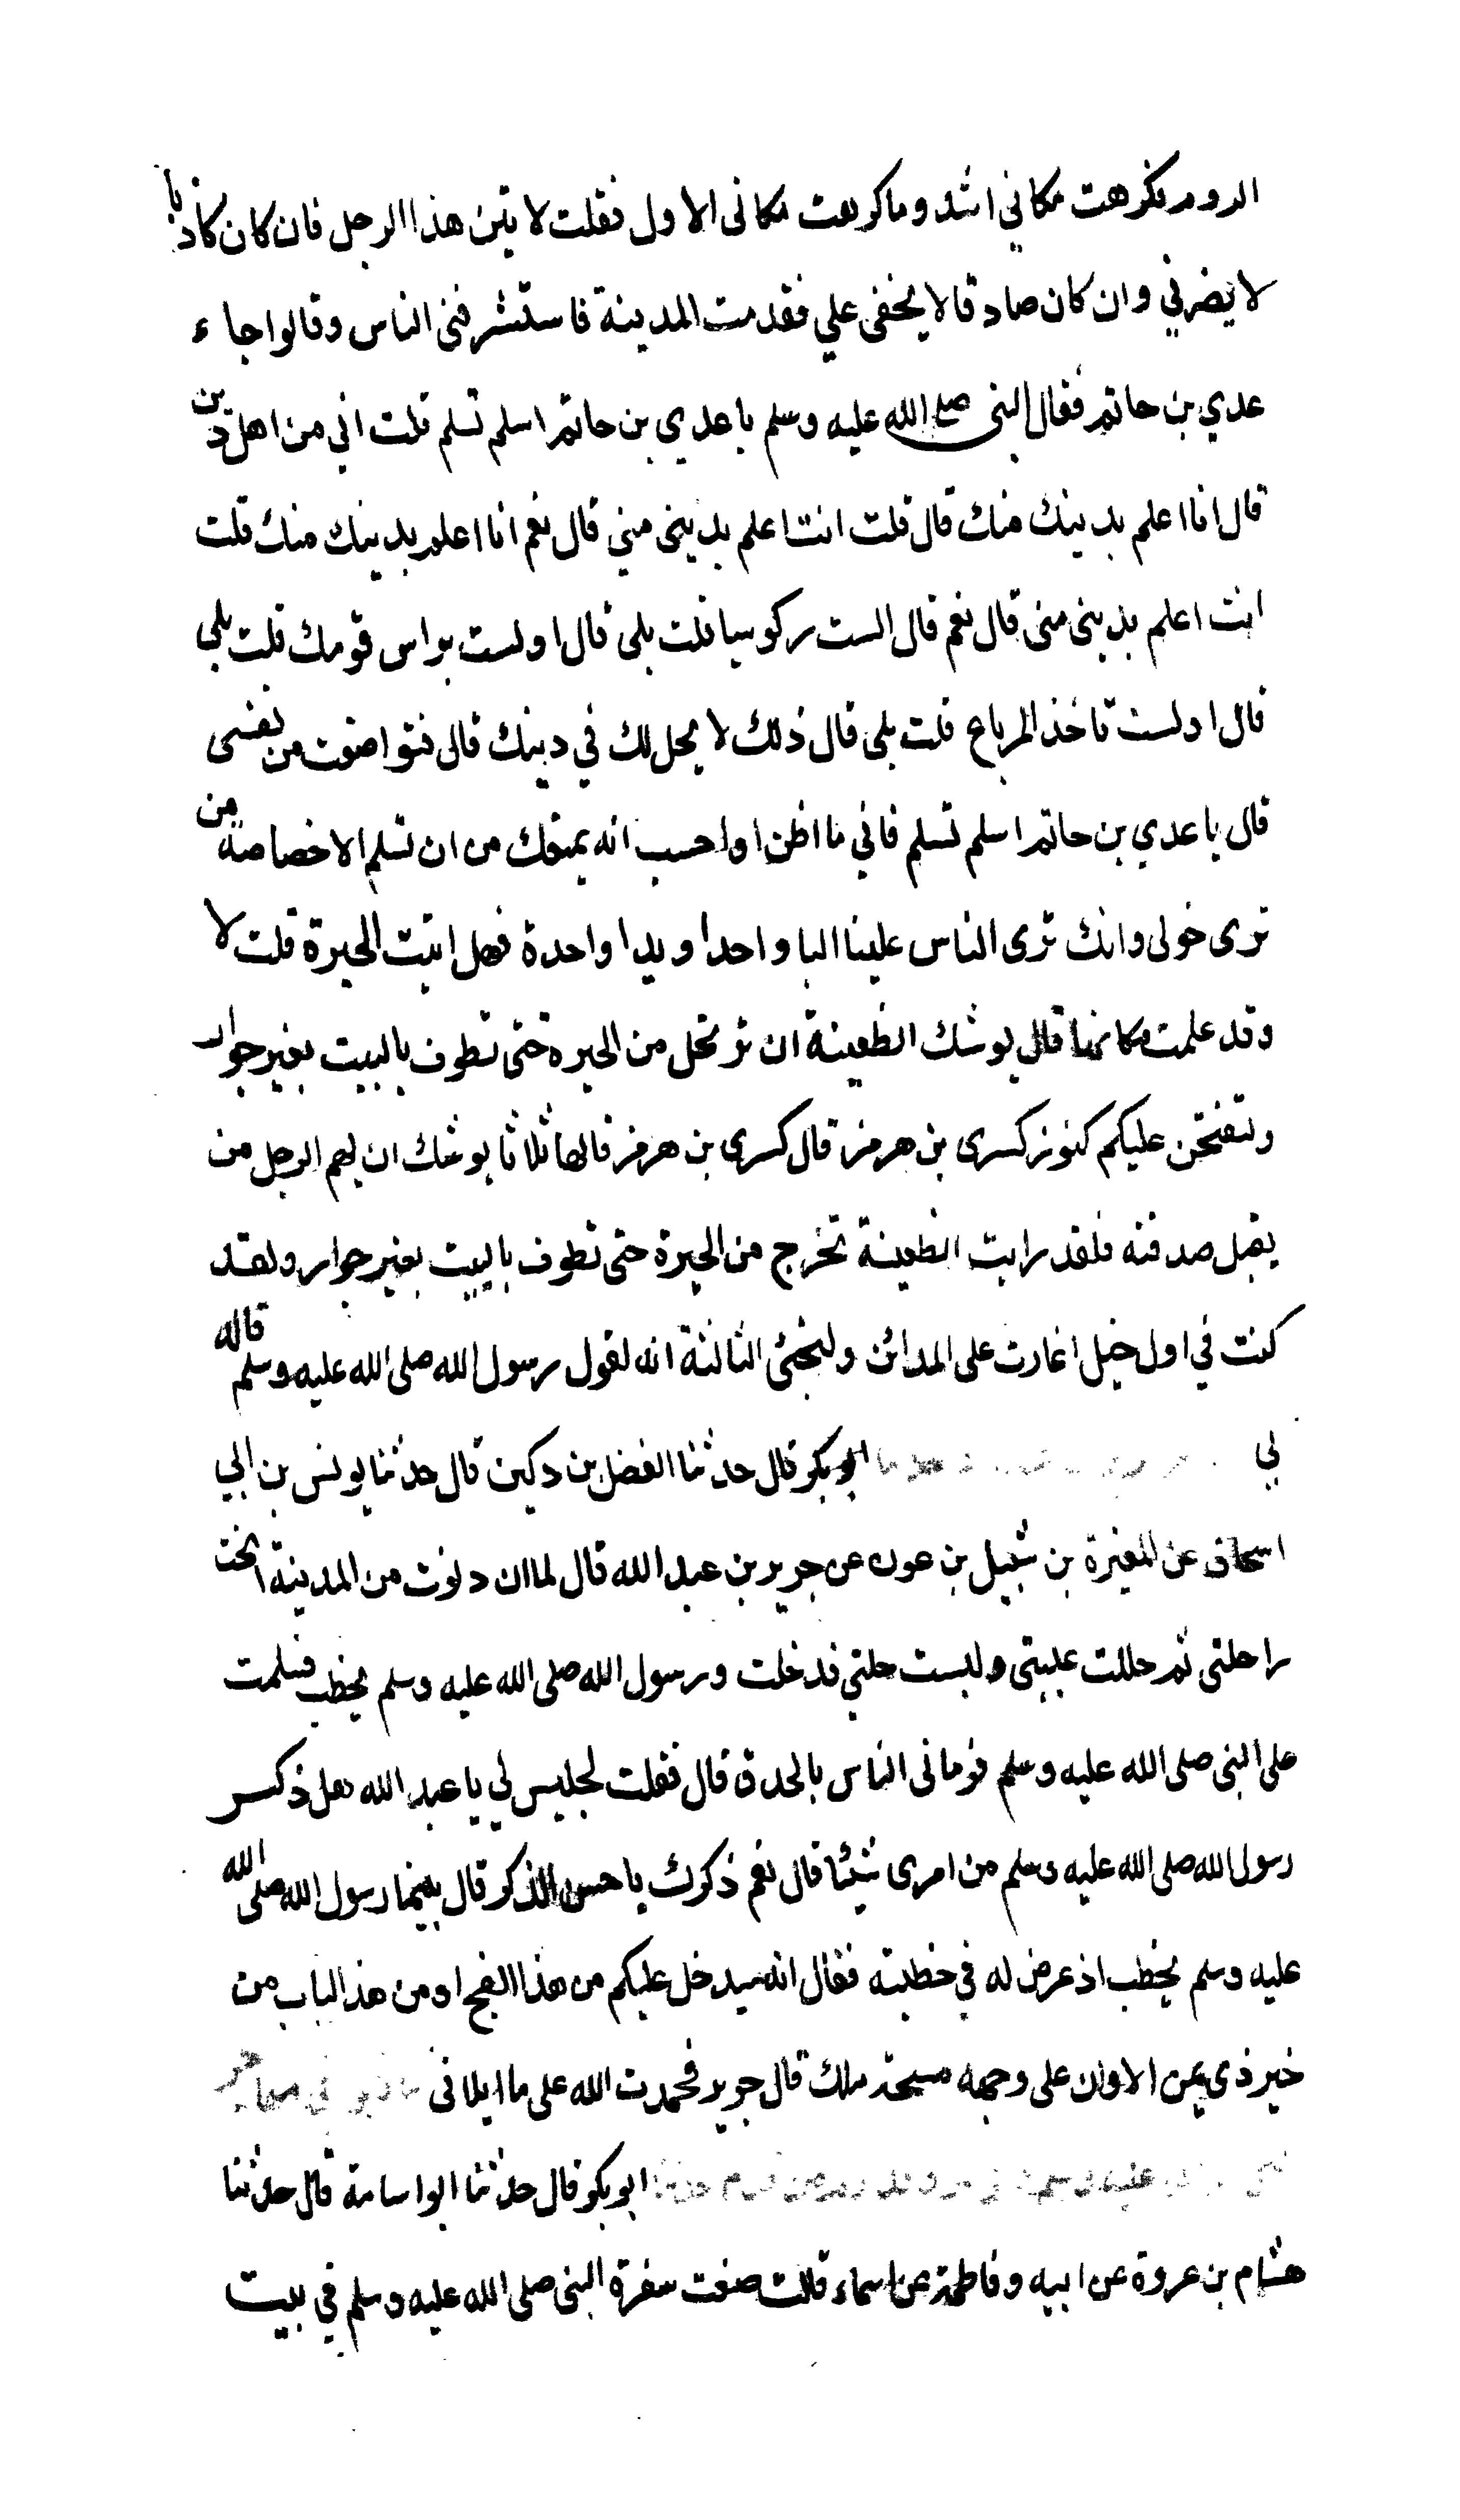 الروم فكرهت مكاني اشد وما كرهت مكانى الاول فقلت لاتين هذا الرجل فان كان كاذبا
لا يضرني وان كان صادقا لا يخفى علي فقدمت المدينة فاستشرفنى الناس وقالوا جاء
عدي بن حاتم فقال النبى صلى الله عليه وسلم يا عدي بن حاتم اسلم تسلم قلت اني من اهل دين
قال انا اعلم بدينك منك قال قلت انت اعلم بدينى مني قال نعم انا اعلم بدينك منك قلت
انت اعلم بدينى منى قال نعم قال الست ركوسيا قلت بلى قال اولست براس قومك قلت بلى
قال اولست تاخذ المرباع قلت بلى قال ذلك لا يحل لك في دينك قال فتواضعت من نفسى
قال يا عدي بن حاتم اسلم تسلم فاني ما اظن او احسب انه يمنعك من ان تسلم الا خصاصة من
ترى حولى وانك ترى الناس علينا البا واحدا ويدا واحدة فهل اتيت الحيرة قلت لا
وقد علمت مكانها قال يوشك الظعينة ان ترتحل من الحيرة حتى تطوف بالبيت بغير جوار
ولتفتحن عليكم كنوز كسرى بن هرمز قال كسرى بن هرمز قالها ثلاثا يوشك ان يهم الرجل من
يقبل صدقته فلقد رايت الظعينة تخرج من الحيرة حتى تطوف بالبيت بغير جوار ولقد
كنت في اول خيل اغارت على المدائن ولتجئى الثالثة انه لقول رسول الله صلى الله عليه وسلم قاله
لي ابو بكر قال حدثنا الفضل بن دكين قال حدثنا يونس بن ابي
اسحاق عن المغيرة بن شبيل بن عون عن جرير بن عبد الله قال لما ان دنوت من المدينة انخت
راحلتى ثم حللت عيبتى ولبست حلتي فدخلت ورسول الله صلى الله عليه وسلم يخطب فسلمت
على النبى صلى الله عليه وسلم فرمانى الناس بالحدق قال فقلت لجليس لي يا عبد الله هل ذكر
رسول الله صلى الله عليه وسلم من امرى شيئا قال نعم ذكرك باحسن الذكر قال بينما رسول الله صلى الله
عليه وسلم يخطب اذ عرض له في خطبته فقال انه سيدخل عليكم من هذا الفج او من هذ الباب من
خير ذي يمن الا وان على وجهه مسحة ملك قال جرير فحمدت الله على ما ابلانى
ابو بكر قال حدثنا ابو اسامة قال حدثنا
هشام بن عروة عن ابيه وفاطمة عن اسماء قالت صنعت سفرة النبى صلى الله عليه وسلم في بيت